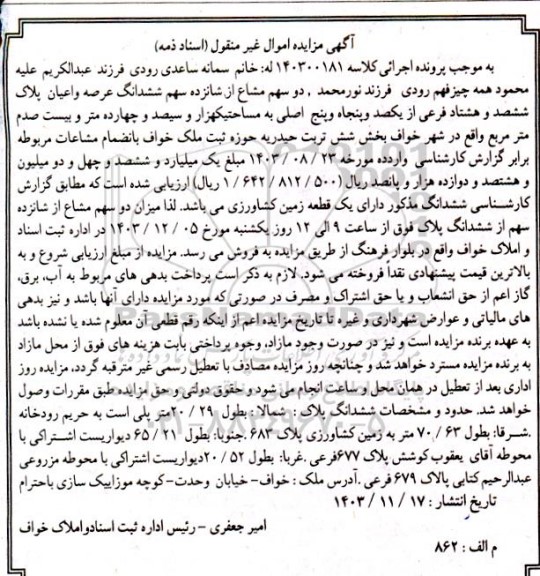 آگهی مزایده اموال غیر منقول (اسناد ذمه)
به موجب پرونده اجرائی کلاسه ۱۴۰۳۰۰۱۸۱ له: خانم سمانه ساعدی رودی فرزند عبدالکریم علیه
محمود همه چیزفهم رودی فرزند نورمحمد ، دو سهم مشاع از شانزده سهم ششدانگ عرصه واعیان پلاک
ششصد و هشتاد فرعی از یکصد وپنجاه وپنج اصلی به مساحتیکهزار و سیصد و چهارده متر و بیست صدم
متر مربع واقع در شهر خواف بخش شش تربت حیدریه حوزه ثبت ملک خواف بانضمام مشاعات مربوطه
برابر گزارش کارشناسی واردده مورخه ۲۳ / ۰۸ / ۱۴۰۳ مبلغ یک میلیارد و ششصد و چهل و دو میلیون
و هشتصد و دوازده هزار و پانصد ریال (۵۰۰ / ۸۱۲ / ۶۴۲ / ۱ ریال) ارزیابی شده است که مطابق گزارش
کارشناسی ششدانگ مذکور دارای یک قطعه زمین کشاورزی می باشد. لذا میزان دو سهم مشاع از شانزده
سهم از ششدانگ پلاک فوق از ساعت ۹ الی ۱۲ روز یکشنبه مورخ ۰۵ / ۱۲ / ۱۴۰۳ در اداره ثبت اسناد
و املاک خواف واقع در بلوار فرهنگ از طریق مزایده به فروش می رسد. مزایده از مبلغ ارزیابی شروع و به
بالاترین قیمت پیشنهادی نقدأ فروخته می شود. لازم به ذکر است پرداخت بدهی های مربوط به آب، برق،
گاز اعم از حق انشعاب و یا حق اشتراک و مصرف در صورتی که مورد مزایده دارای آنها باشد و نیز بدهی
های مالیاتی و عوارض شهرداری و غیره تا تاریخ مزایده اعم از اینکه رقم قطعی آن معلوم شده یا نشده باشد
به عهده برنده مزایده است و نیز در صورت وجود مازاد، وجوه پرداختی بابت هزینه های فوق از محل مازاد
به برنده مزایده مسترد خواهد شد و چنانچه روز مزایده مصادف با تعطیل رسمی غیر مترقبه گردد، مزایده روز
اداری بعد از تعطیل در همان محل و ساعت انجام می شود و حقوق دولتی و حق مزایده طبق مقررات وصول
خواهد شد. حدود و مشخصات ششدانگ پلاک : شمالا : بطول ۲۹ / ۲۰متر پلی است به حریم رودخانه
.شرقا: بطول ۶۳ / ۷۰ متر به زمین کشاورزی پلاک ۶۸۳ .جنوبا: بطول ۲۱ / ۶۵ دیواریست اشتراکی با
محوطه آقای یعقوب کوشش پلاک ۶۷۷فرعی .غربا: بطول ۵۲ / ۲۰دیواریست اشتراکی با محوطه مزروعی
عبدالرحیم کتابی پالاک ۶۷۹ فرعی .آدرس ملک : خواف- خیابان وحدت- کوچه موزاییک سازی باحترام
تاریخ انتشار : ۱۷ / ۱۱ / ۱۴۰۳
امیر جعفری - رئیس اداره ثبت اسنادواملاک خواف
م الف : ۸۶۲
ParsNamadData
۰۲۱-۸۸۳۴۹۶۷۰-۵